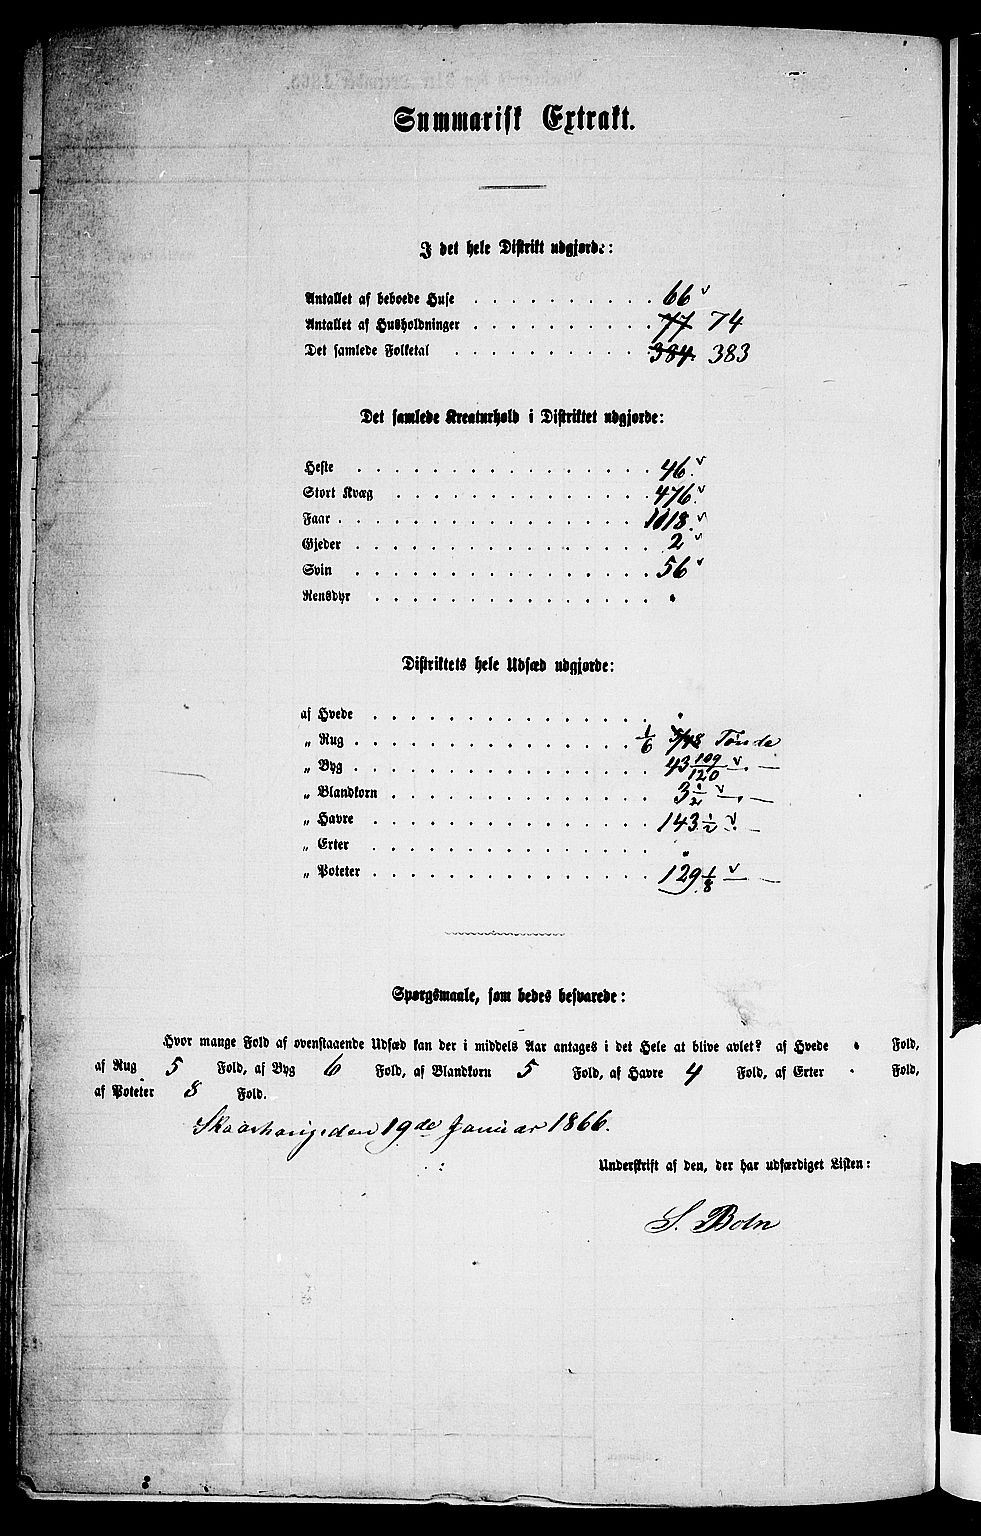 Summarisk Extrakt.
I det hele Distrikt udgjorde:
Antallet af beboede Huse . . . . . . . . . . 66 v
Antallet af Husholdninger . . . . . . . . . . 77 74
Det samlede Folketal . . . . . . . . . . . 384. 383
Det samlede Kreaturhold i Distriktet udgjorde:
Heste . . . . . . . . . . . . . . . . 46. v
Stort Kvæg . . . . . . . . . . . . . . 476. v
Faar . . . . . . . . . . . . . . . . . 1018. v
Gjeder . . . . . . . . . . . . . . . . 2 v
Svin . . . . . . . . . . . . . . . . 56 v
Rensdyr . . . . . . . . . . . . . . . "
Distriktets hele Udsæd udgjorde:
af Hvede . . . . . . . . . . . . . . . "
„ Rug . . . . . . . . . . . . . . . . 1/6 5/48 Tønde
„ Byg . . . . . . . . . . . . . . . . 43 109/120 v — —
„ Blandkorn . . . . . . . . . . . . . . 3 1/2 v — —
„ Havre . . . . . . . . . . . . . . . 143 1/2 v — —
„ Erter . . . . . . . . . . . . . . . "
„ Poteter . . . . . . . . . . . . . . . 129 1/8 v — —
Spørgsmaale, som bedes besvarede:
Hvor mange Fold af ovenstaaende Udsæd kan der i middels Aar antages i det Hele at blive avlet? af Hvede " Fold,
af Rug 5 Fold, af Byg 6 Fold, af Blandkorn 5 Fold, af Havre 4 Fold, af Erter " Fold,
af Poteter 8 Fold.
den 19de Januar 1866.
Underskrift af den, der har udfærdiget Listen:
S. Boln